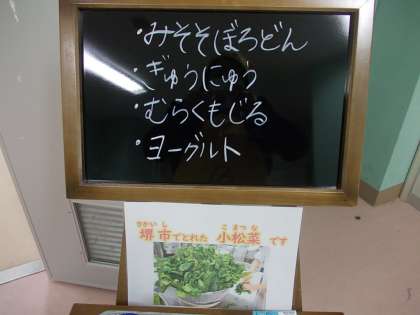 ・みそそぼろどん
・ぎゅうにゅう
・むらくもじる
・ヨーグルト
さかいし こまつな
堺市でとれた 小松菜 です